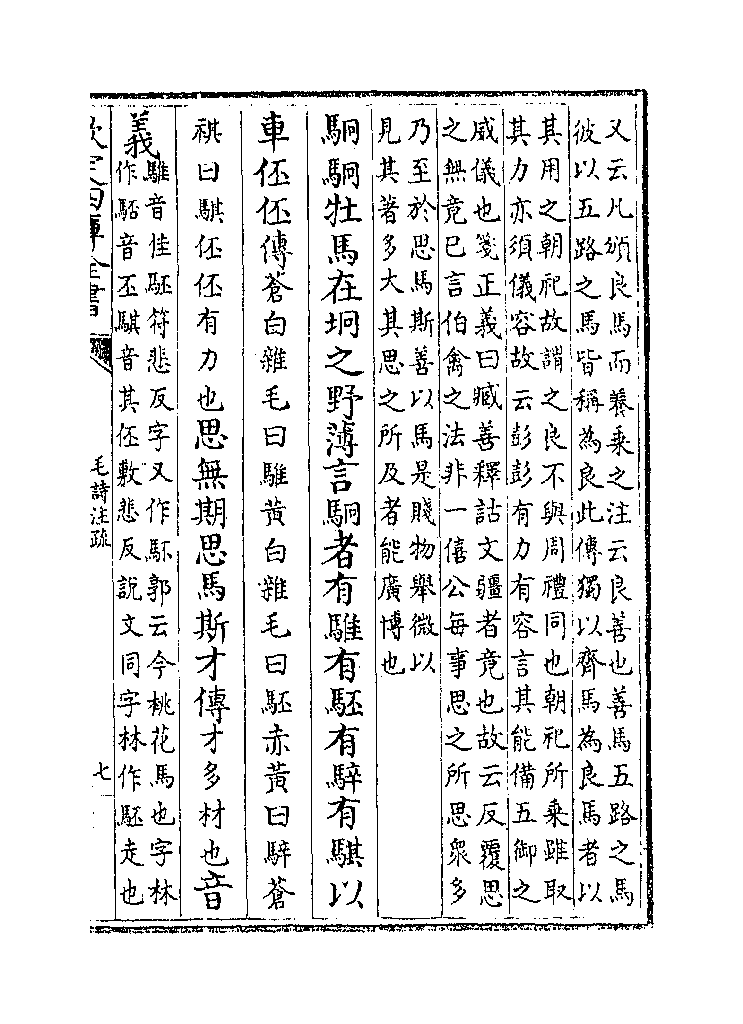 又云凡頒良馬而養乗之注云良善也善馬五路之馬
彼以五路之馬皆稱為良此傳獨以齊馬為良馬者以
其用之朝祀故謂之良不與周禮同也朝祀所乗雖取
其力亦須儀容故云彭彭有力有容言其能備五御之
威儀也箋正義曰臧善釋詁文疆者竟也故云反覆思
之無竟已言伯禽之法非一僖公每事思之所思衆多
乃至於思馬斯善以馬是賤物舉微以
見其著多大其思之所及者能廣博也
駉駉牡馬在坰之野薄言駉者有騅有駓有騂有騏以
車伾伾傳蒼白雜毛曰騅黃白雜毛曰駓赤黃曰騂蒼
祺曰騏伾伾有力也思無期思馬斯才傳才多材也音
義騅音隹駓符悲反字又作䭾郭云今桃花馬也字林
作駓音丕騏音其伾敷悲反說文同字林作駓走也
欽定四庫全書
毛詩注疏
七